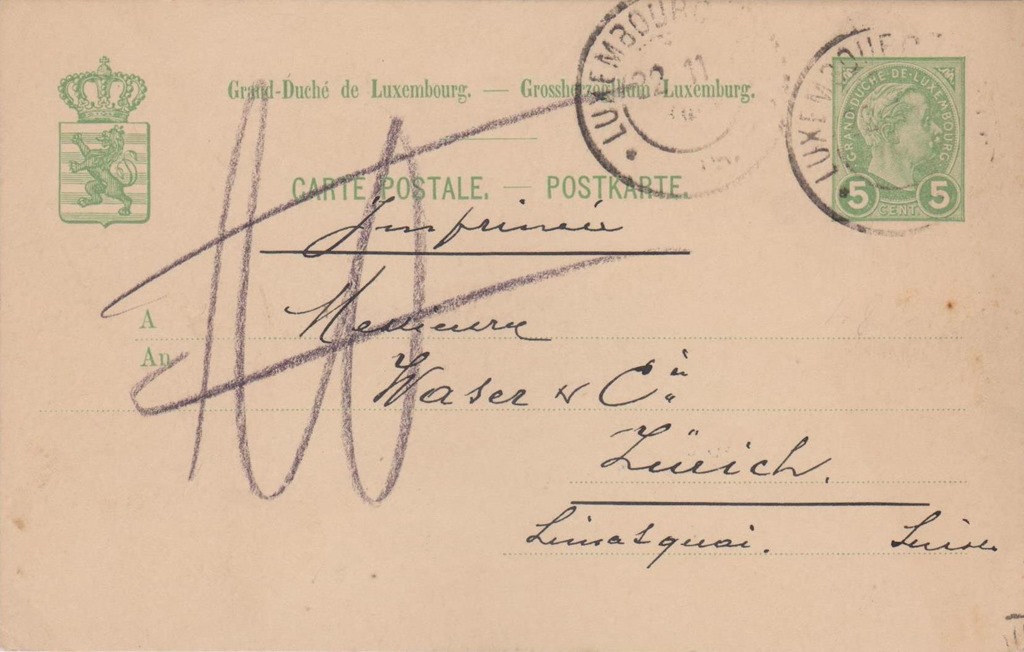 Grand-Duché de Luxembourg. — Grossherzogthum Luxemburg.
LUXEMBOURG
22 11
LUXEMBOURG
GRAND-DUCHÉ-DE-LUXEMBOURG
5 CENT. 5
CARTE POSTALE. — POSTKARTE.
Imprimée
A
An
Messieurs
Waser & Cie
Zürich.
Limatquai. Suisse